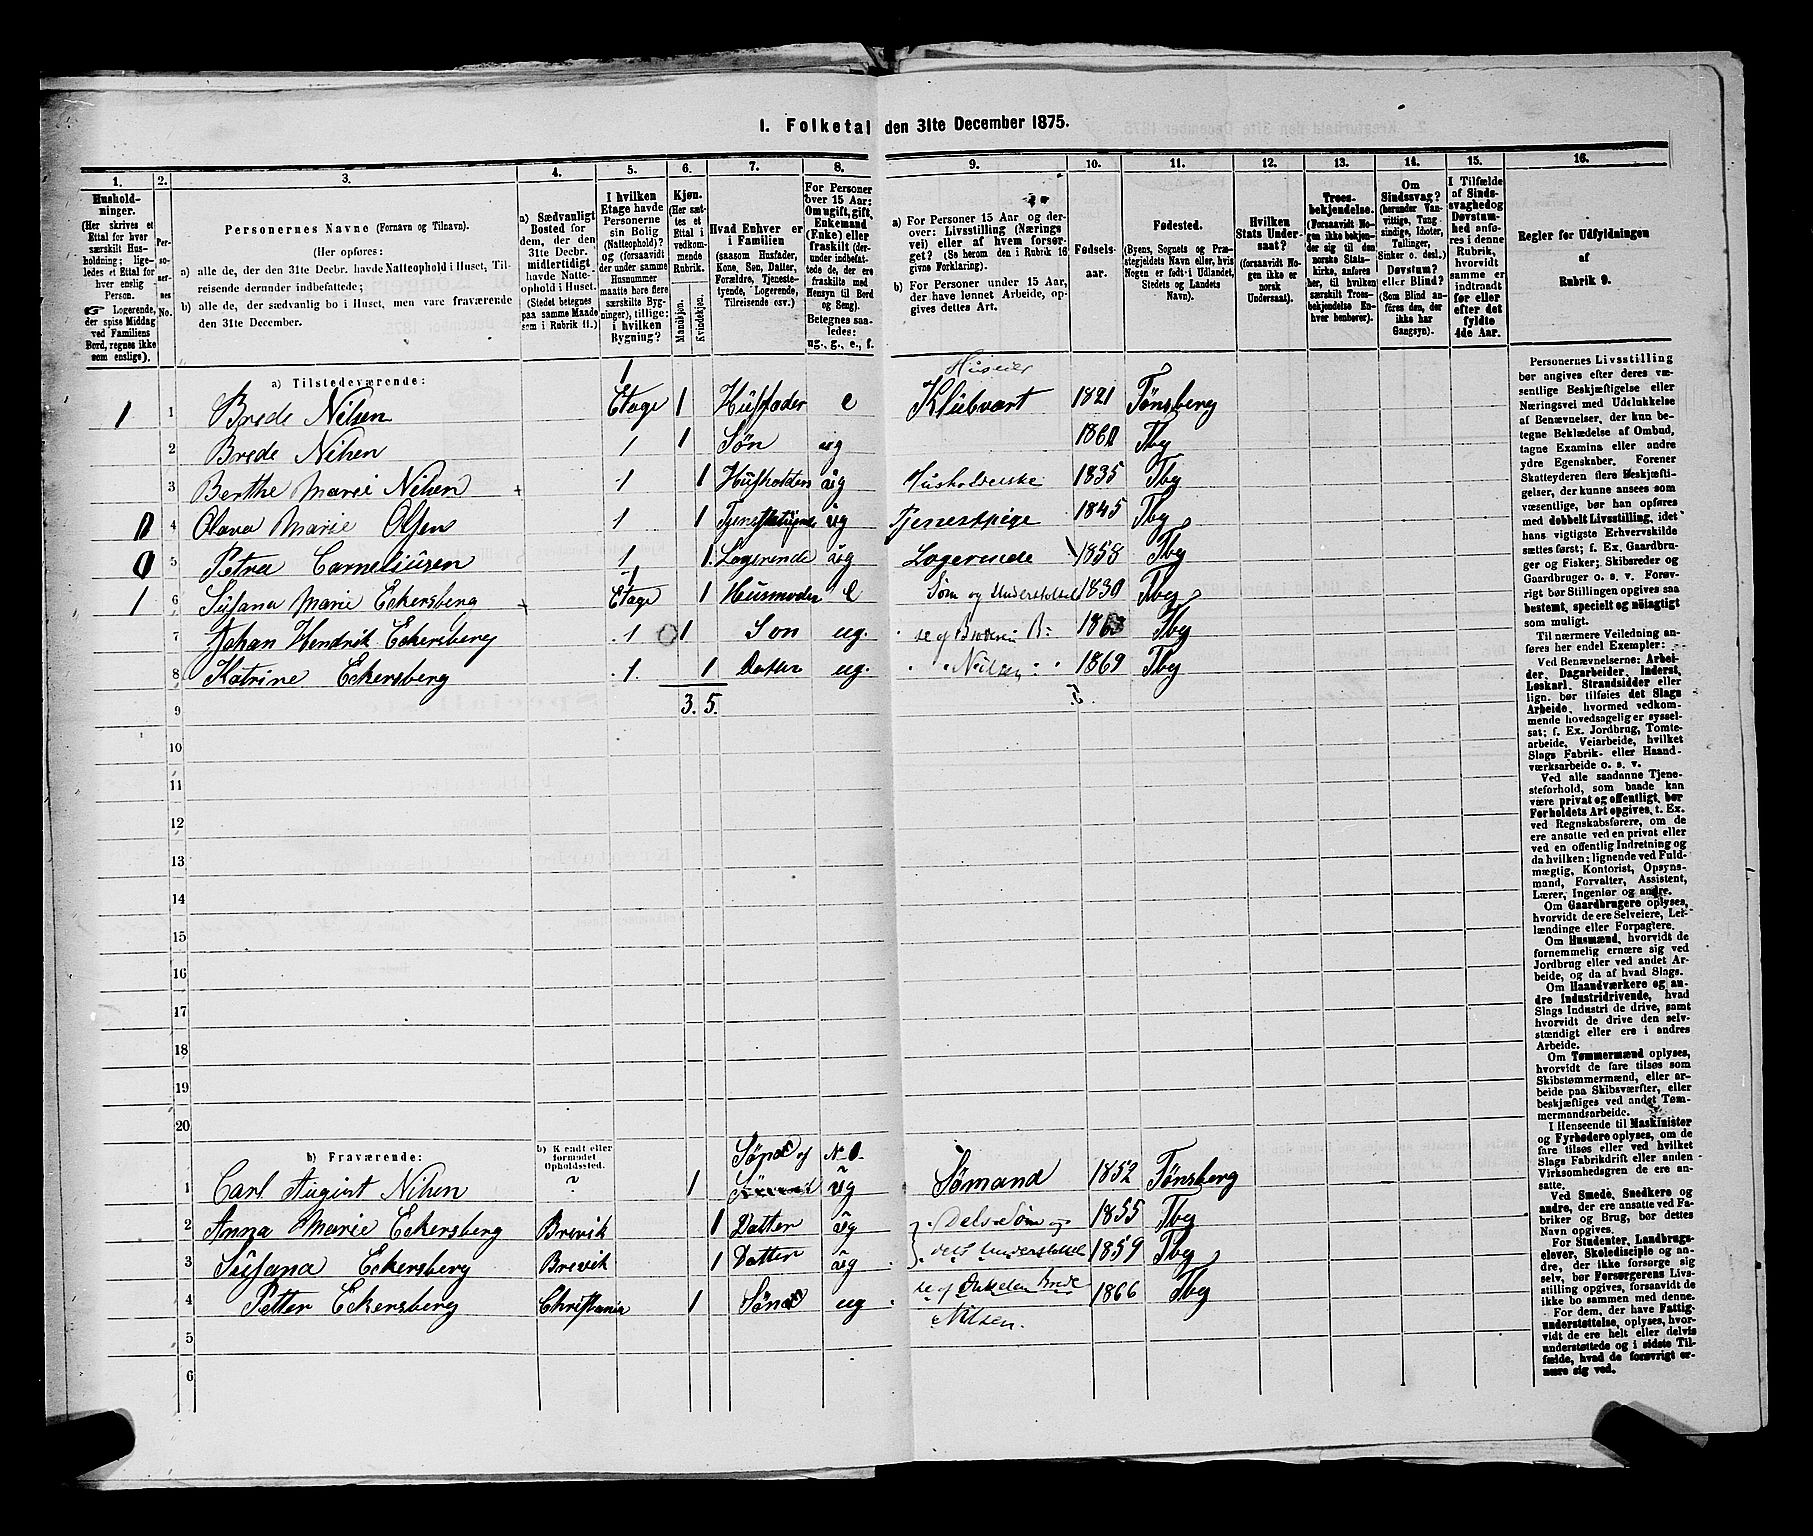 1. Folketal den 31te December 1875.
1.
2.
3.
4.
5.
6.
7.
8.
9.
10.
11.
12.
13.
14.
15.
16.
Husholdninger.
(Her skrives et
Ettal for hver
særskilt Husholdning;
ligeledes et Ettal for
hver enslig
Person.
Logerende,
der spise Middag
ved Familiens
Bord, regnes ikke
som enslige).
Personernes No.
Personernes Navne (Fornavn og Tilnavn).
(Her opføres:
a) alle de, der den 31te Decbr. havde Natteophold i Huset, Tilreisende derunder indbefattede;
b) alle de, der sædvanlig bo i Huset, men vare fraværende den 31te December.
a) Sædvanligt
Bosted for
dem, der den
31te Decbr.
midlertidigt
havde Natteophold i Huset.
(Stedet betegnes
paa samme Maade
som i Rubrik 11.)
I hvilken
Etage havde
Personerne
sin Bolig
(Natteophold)?
og (forsaavidt
der under samme
Husnummer
maatte høre flere
særskilte Bygninger), tillige:
i hvilken
Bygning?
Kjøn.
(Her sættes et
Ettal i
vedkommende
Rubrik.
Mandkjøn.
Kvindekjøn.
Hvad Enhver er
i Familien
(saasom Husfader,
Kone, Søn, Datter,
Forældre, Tjenestetyende, Logerende,
Tilreisende osv.)
For Personer
over 15 Aar:
Om ugift, gift,
Enkemand
(Enke) eller
fraskilt (derunder indbefattede de, der ere
fraskilte med
Hensyn til Bord
og Seng).
Betegnes saaledes:
ug., g., e., f.
a) For Personer 15 Aar og derover: Livsstilling (Næringsvei) eller af hvem forsørget? (Se herom den i Rubrik 16
givne Forklaring).
b) For Personer under 15 Aar,
der have lønnet Arbeide, opgives dettes Art.
Fødselsaar.
Fødested.
(Byens, Sognets og Præstegjeldets Navn eller, hvis
Nogen er født i Udlandet,
Stedets og Landets
Navn).
Hvilken
Stats Undersaat?
(forsaavidt Nogen ikke er
norsk
Undersaat).
Troesbekjendelse.
(Forsaavidt Nogen ikke bekjender sig til den
norske Statskirke, anføres
her, til hvilken
særskilt Troesbekjendelse Enhver henhører).
Om
Sindssvag?
(herunder Vanvittige, Tungsindige, Idioter,
Tullinger,
Sinker o. desl.)
Døvstum?
eller Blind?
(Som Blind anføres den, der
ikke har
Gangsyn).
I Tilfælde
af Sindssvaghed og
Døvstumhed anføres i denne
Rubrik,
hvorvidt
samme er
indtraadt
før eller
efter det
fyldte
4de Aar.
Regler for Udfyldningen
af
Rubrik 9.
a) Tilstedeværende:
1 1 Brede Nilsen 1 Etage 1 Husfader e Huseier Klubvært 1821 Tønsberg
2 Brede Nilsen 1 1 Søn ug 1860 Tbg
3 Berthe Marie Nilsen + 1 1 Husholders ug Husholderske 1835 Tbg
4 Olava Marie Olsen 1 1 Tjenestetyende ug Tjenestpige 1845 Tbg
5 Petra Corneliüsen 1 1 Logerende ug Logerende 1858 Tbg
1 6 Susana Marie Eckersberg + 1 Etage 1 Husmoder e Søm og Understøttel 1830 Tbg
7 Johan Hendrik Eckersberg 1 1 Søn ug. se af Broderen B: 1863 Tbg
8 Katrine Eckersberg 1. 1 Datter ug. " " Nilsen " " 1869 Tbg
9 3. 5.
10
11
12
13
14
15
16
17
18
19
20
b) Fraværende:
b) Kjendt eller
formodet
Opholdssted.
1 Carl August Nilsen ? 1 Søn af N. 1. ug Sømand 1852 Tønsberg
2 Anna Marie Eckersberg Brevik 1 Datter ug dels Søm og 1855 Tbg
3 Susana Eckersberg Brevik 1 Datter ug dels Understøttel 1859 Tbg
4 Petter Eckersberg Christiania 1 Søn ug se af Onkelen Brede Nilsen. 1866 Tbg
5
6
Personernes Livsstilling
bør angives efter deres væsentlige Beskjæftigelse eller
Næringsvei med Udelukkelse
af Benævnelser, der kun betegne Beklædelse af Ombud,
tagne Examina eller andre
ydre Egenskaber. Forener
Skatteyderen flere Beskjæftigelser, der kunne ansees som
væsentlige, bør han opføres
med dobbelt Livsstilling, idet
hans vigtigste Erhvervskilde
sættes først; f. Ex. Gaardbruger og Fisker; Skibsreder og
Gaardbruger o. s. v. Forøvrigt bør Stillingen opgives saa
bestemt, specielt og nøiagtigt
som muligt.
Til nærmere Veiledning anføres her endel Exempler:
Ved Benævnelserne: Arbeider, Dagarbeider, Inderst,
Løskarl, Strandsidder eller
lign. bør tilføies det Slags
Arbeide, hvormed vedkommende hovedsagelig er sysselsat; f. Ex. Jordbrug, Tomtearbeide, Veiarbeide, hvilket
Slags Fabrik- eller Haandværksarbeide o. s. v.
Ved alle saadanne Tjenesteforhold, som baade kan
være privat og offentligt, bør
Forholdets Art opgives, t. Ex.
ved Regnskabsførere, om de
ere ansatte ved en privat eller
ved en offentlig Indretning og
da hvilken; lignende ved Fuldmægtig, Kontorist, Opsynsmand, Forvalter, Assistent,
Lærer, Ingeniør og andre.
Om Gaardbrugere oplyses,
hvorvidt de ere Selveiere, Leilændinge eller Forpagtere.
Om Husmænd, hvorvidt de
fornemmelig ernære sig ved
Jordbrug eller ved andet Arbeide, og da af hvad Slags.
Om Haandværkere og andre Industridrivende, hvad
Slags Industri de drive, samt
hvorvidt de drive den selvstændigt eller ere i andres
Arbeide.
Om Tømmermænd oplyses,
hvorvidt de fare tilsøs som
Skibstømmermænd, eller arbeide paa Skibsværfter, eller
beskjæftiges ved andet Tømmermandsarbeide.
I Henseende til Maskinister
og Fyrbødere oplyses, om de
fare tilsøs eller ved hvilket
Slags Fabrikdrift eller anden
Virksomhedsgren de ere ansatte.
Ved Smede, Snedkere og
andre, der ere ansatte ved Fabriker og Brug, bør dettes
Navn opgives.
For Studenter, Landbrugselever, Skoledisciple og andre, der ikke forsørge sig
selv, bør Forsørgerens Livsstilling opgives, forsaavidt de
ikke bo sammen med denne.
For dem, der have Fattigunderstøttelse, oplyses, hvorvidt de ere helt eller delvis
understøttede og i sidste Tilfælde, hvad de forøvrigt ernære sig ved.